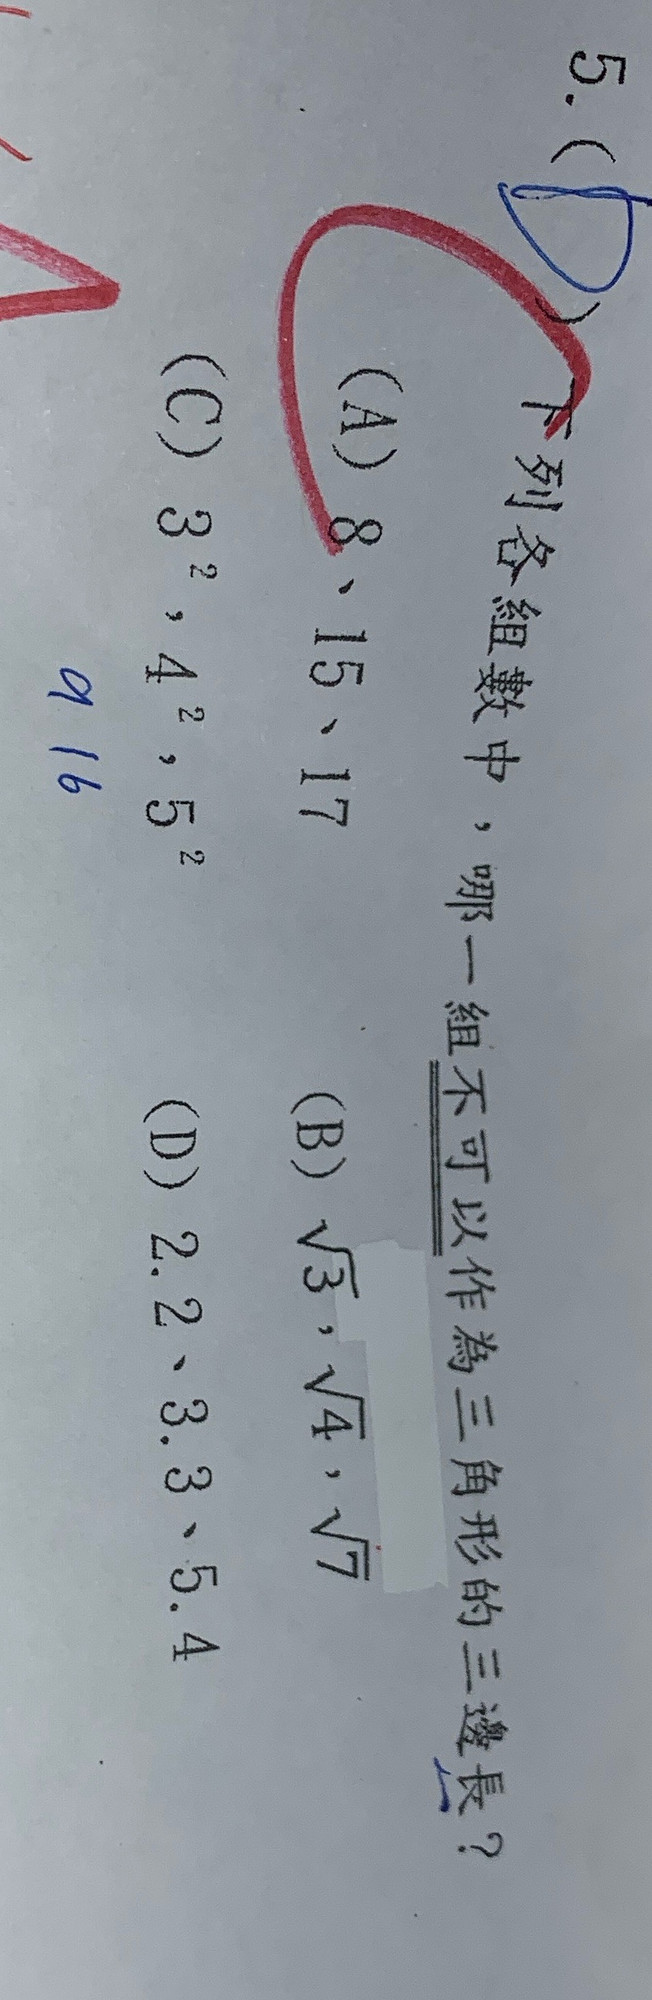 5.( D )下列各組數中，哪一組不可以作為三角形的三邊長？
(A) 8、15、17 (B) √3，√4，√7
(C) 3²，4²，5² (D) 2.2、3.3、5.4
9 16